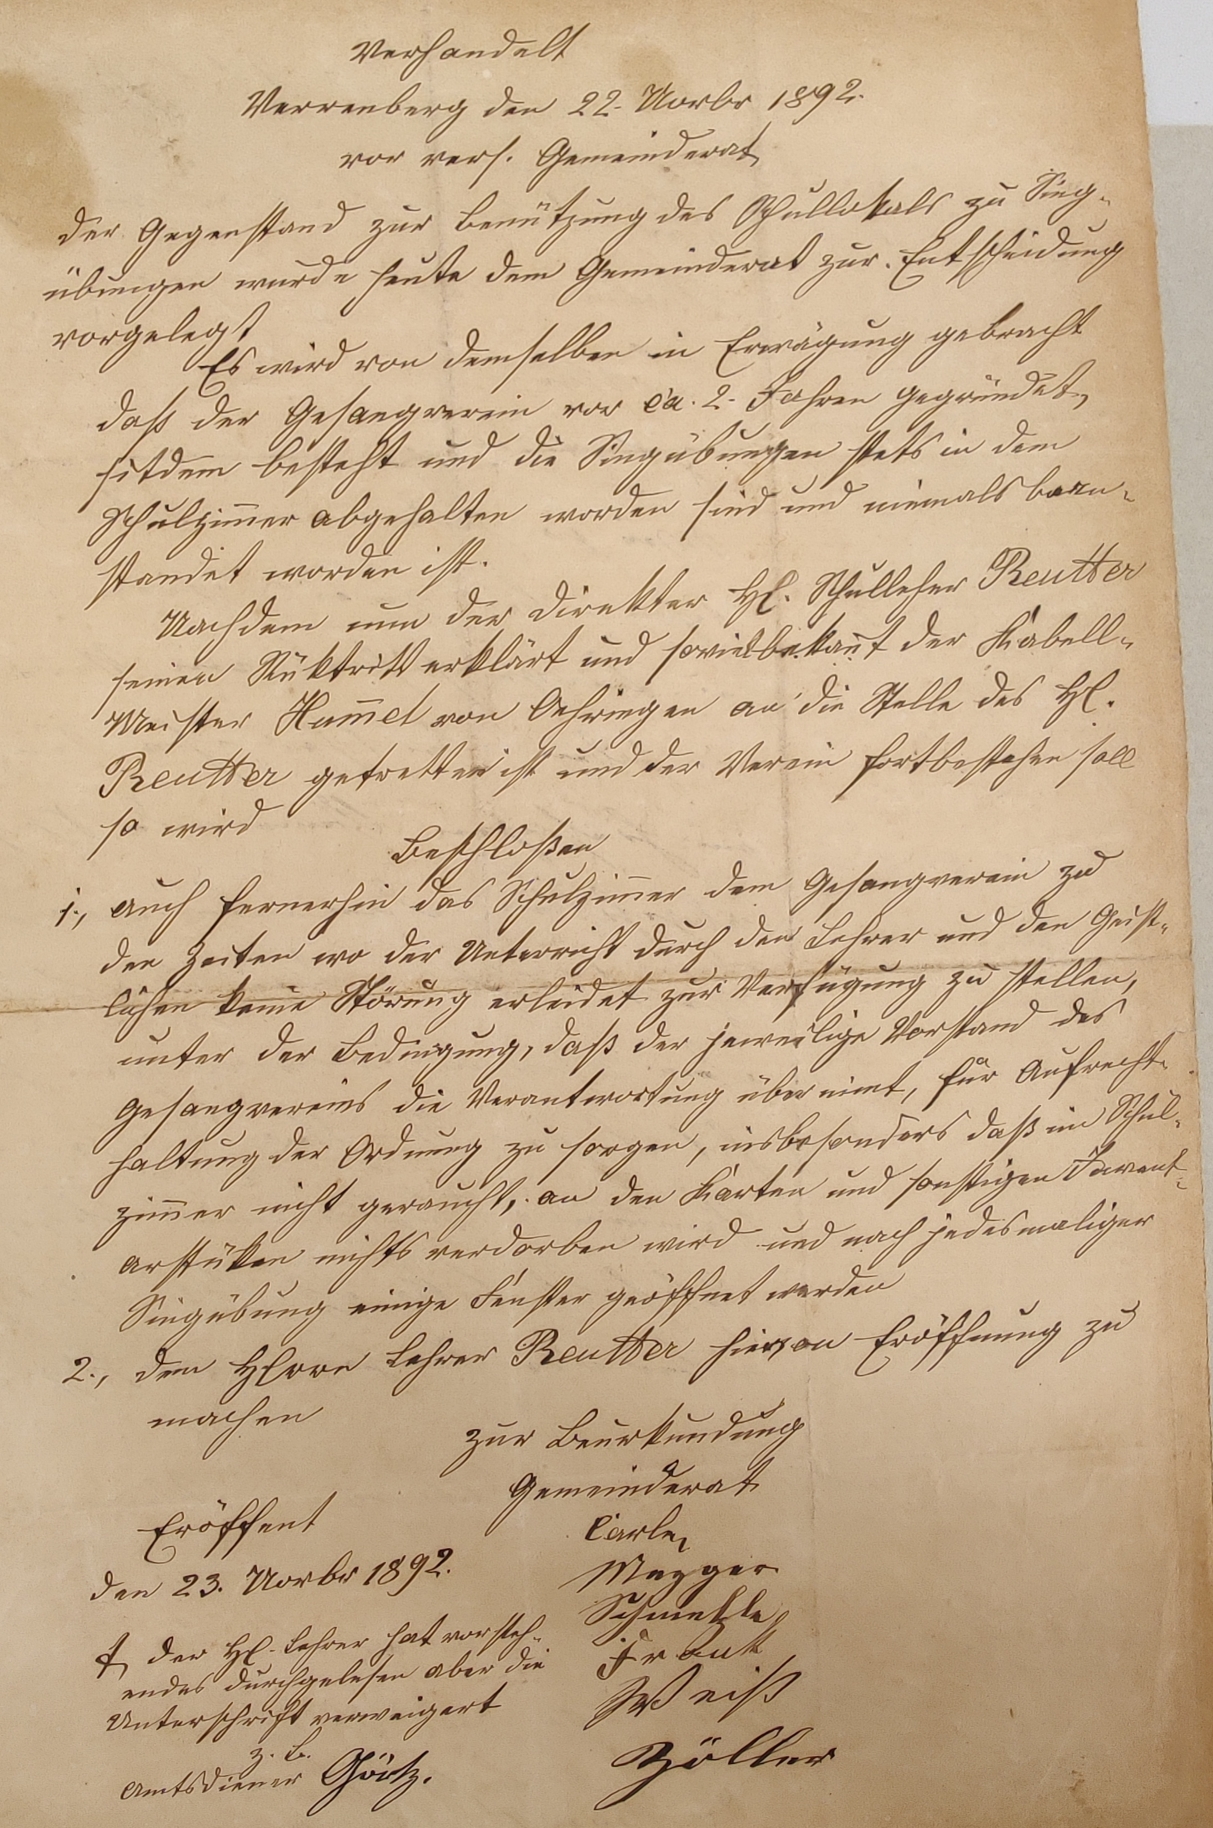 Verhandelt
Verrenberg den 22. Novbr 1892.
vor vers. Gemeinderat
Der Gegenstand zur Benützung des Schullokals zu Sing-
übungen wurde heute dem Gemeinderat zur Entscheidung
vorgelegt
Es wird von demselben in Erwägung gebracht
daß der Gesangverein vor ca. 2. Jahren gegründet,
sitdem besteht und die Singübungen stets in dem
Schulzim̄er abgehalten worden sind und niemals bean-
standet worden ist.
Nachdem nun der Direkter H. Schulleher Reutter
seinen Rüktritt erklärt und sovielbekan̄t der Kabell-
Meister Ham̄el von Oehringen an die Stelle des H.
Reutter getretten ist und der Verein fortbestehen soll
so wird
Beschloßen
1., auch fernerhin das Schulzim̄er dem Gesangverein zu
den Zeiten wo der Unterricht durch den Lehrer und den Geist-
lichen keine Störung erleidet zur Verfügung zu stellen,
unter der Bedingung, daß der jeweilige Vorstand des
Gesangvereins die Verantwortung übernim̄t, für Aufrecht-
haltung der Ordnung zu sorgen, insbesonders daß im Schul-
zim̄er nicht geraucht, an den Karten und sonstigen Invent-
arstüken nichts verdorben wird und nach jedesmaliger
Singübung einige Fenster geöffnet werden
2., dem Herrn Lehrer Reutter hievon Eröffnung zu
machen
Zur Beurkundung
Gemeinderat
Eröffent
den 23. Novbr 1892.
Der H. Lehrer hat vorsteh-
endes durchgelesen aber die
Unterschrift verweigert
z. B.
Amtsdiener Götz.
Carle,
Mezger
Schmelzle
Frank
Weiß
Zöller